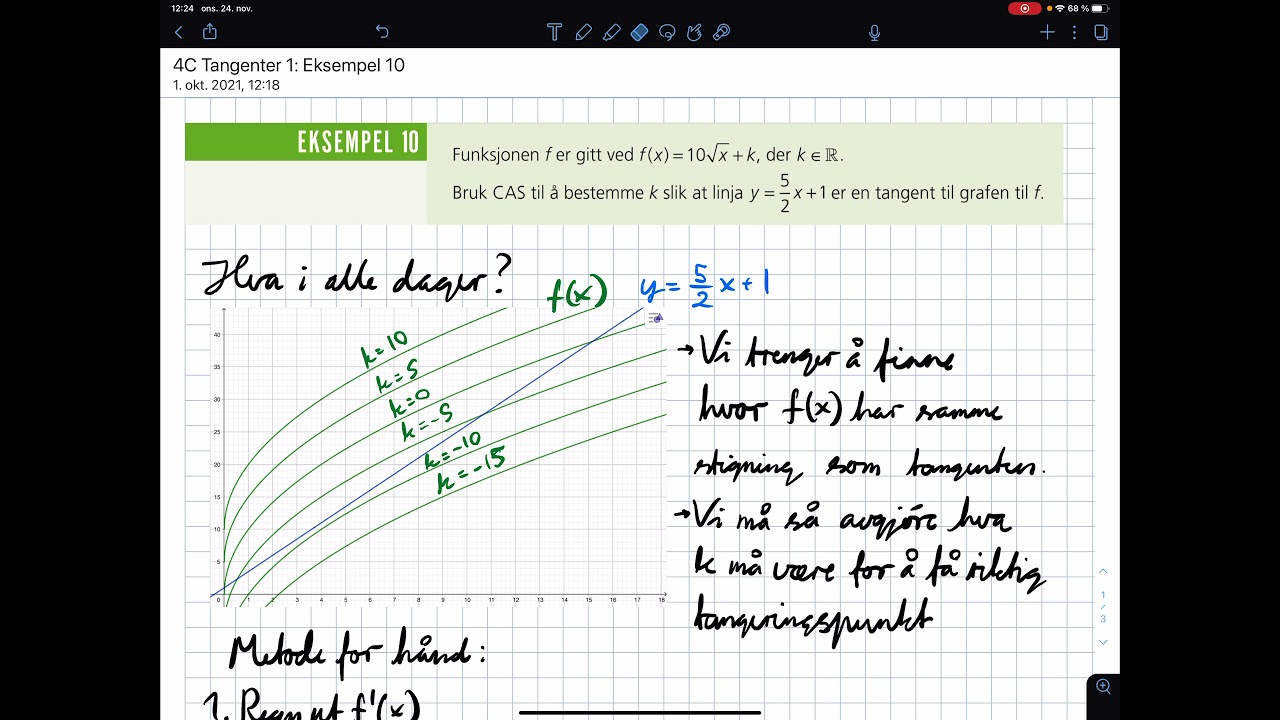 12:24 ons. 24. nov.
68 %
4C Tangenter 1: Eksempel 10
1. okt. 2021, 12:18
EKSEMPEL 10
Funksjonen f er gitt ved f(x) = 10√x + k, der k ∈ ℝ.
Bruk CAS til å bestemme k slik at linja y = 5/2 x + 1 er en tangent til grafen til f.
Hva i alle dager?
f(x)
y = 5/2 x + 1
k = 10
k = 5
k = 0
k = -5
k = -10
k = -15
40
35
30
25
20
15
10
5
0 1 2 3 4 5 6 7 8 9 10 11 12 13 14 15 16 17 18
→ Vi trenger å finne
hvor f(x) har samme
stigning som tangenten.
→ Vi må så avgjøre hva
k må være for å få riktig
tangeringspunkt
1
/
3
Metode for hånd:
1. Regn ut f'(x)